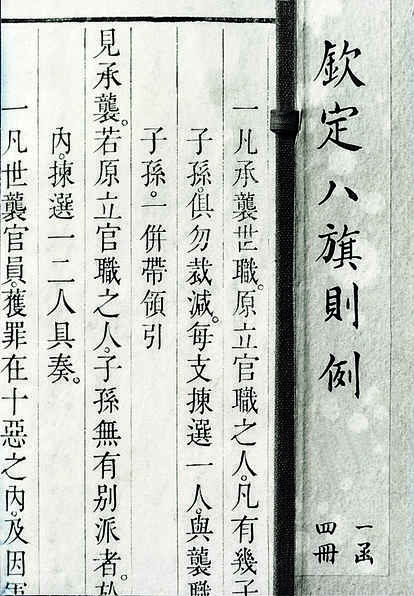 欽定八旗則例
一函
四冊
一凡承襲世職。原立官職之人。凡有幾子
子孫。俱勿裁減。每支揀選一人。與襲職
子孫。一併帶領引
見承襲。若原立官職之人。子孫無有别派者。於
內。揀選一二人具奏。
一凡世襲官員。獲罪在十惡之內。及因軍